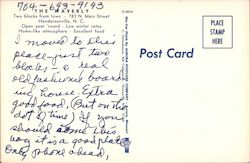 704-693-9193
THE WAVERLY
Two blocks from town - 783 N. Main Street
Hendersonville, N. C.
Open year 'round - Low winter rates
Home-like atmosphere - Excellent food
I moved to this
place - just two
blocks - a real
old fashioned board-
ing house. Extra
good food, (But on the
dot of time) If you
should come this
way it is a good place
Only phone ahead,
Post Card
PLACE
STAMP
HERE